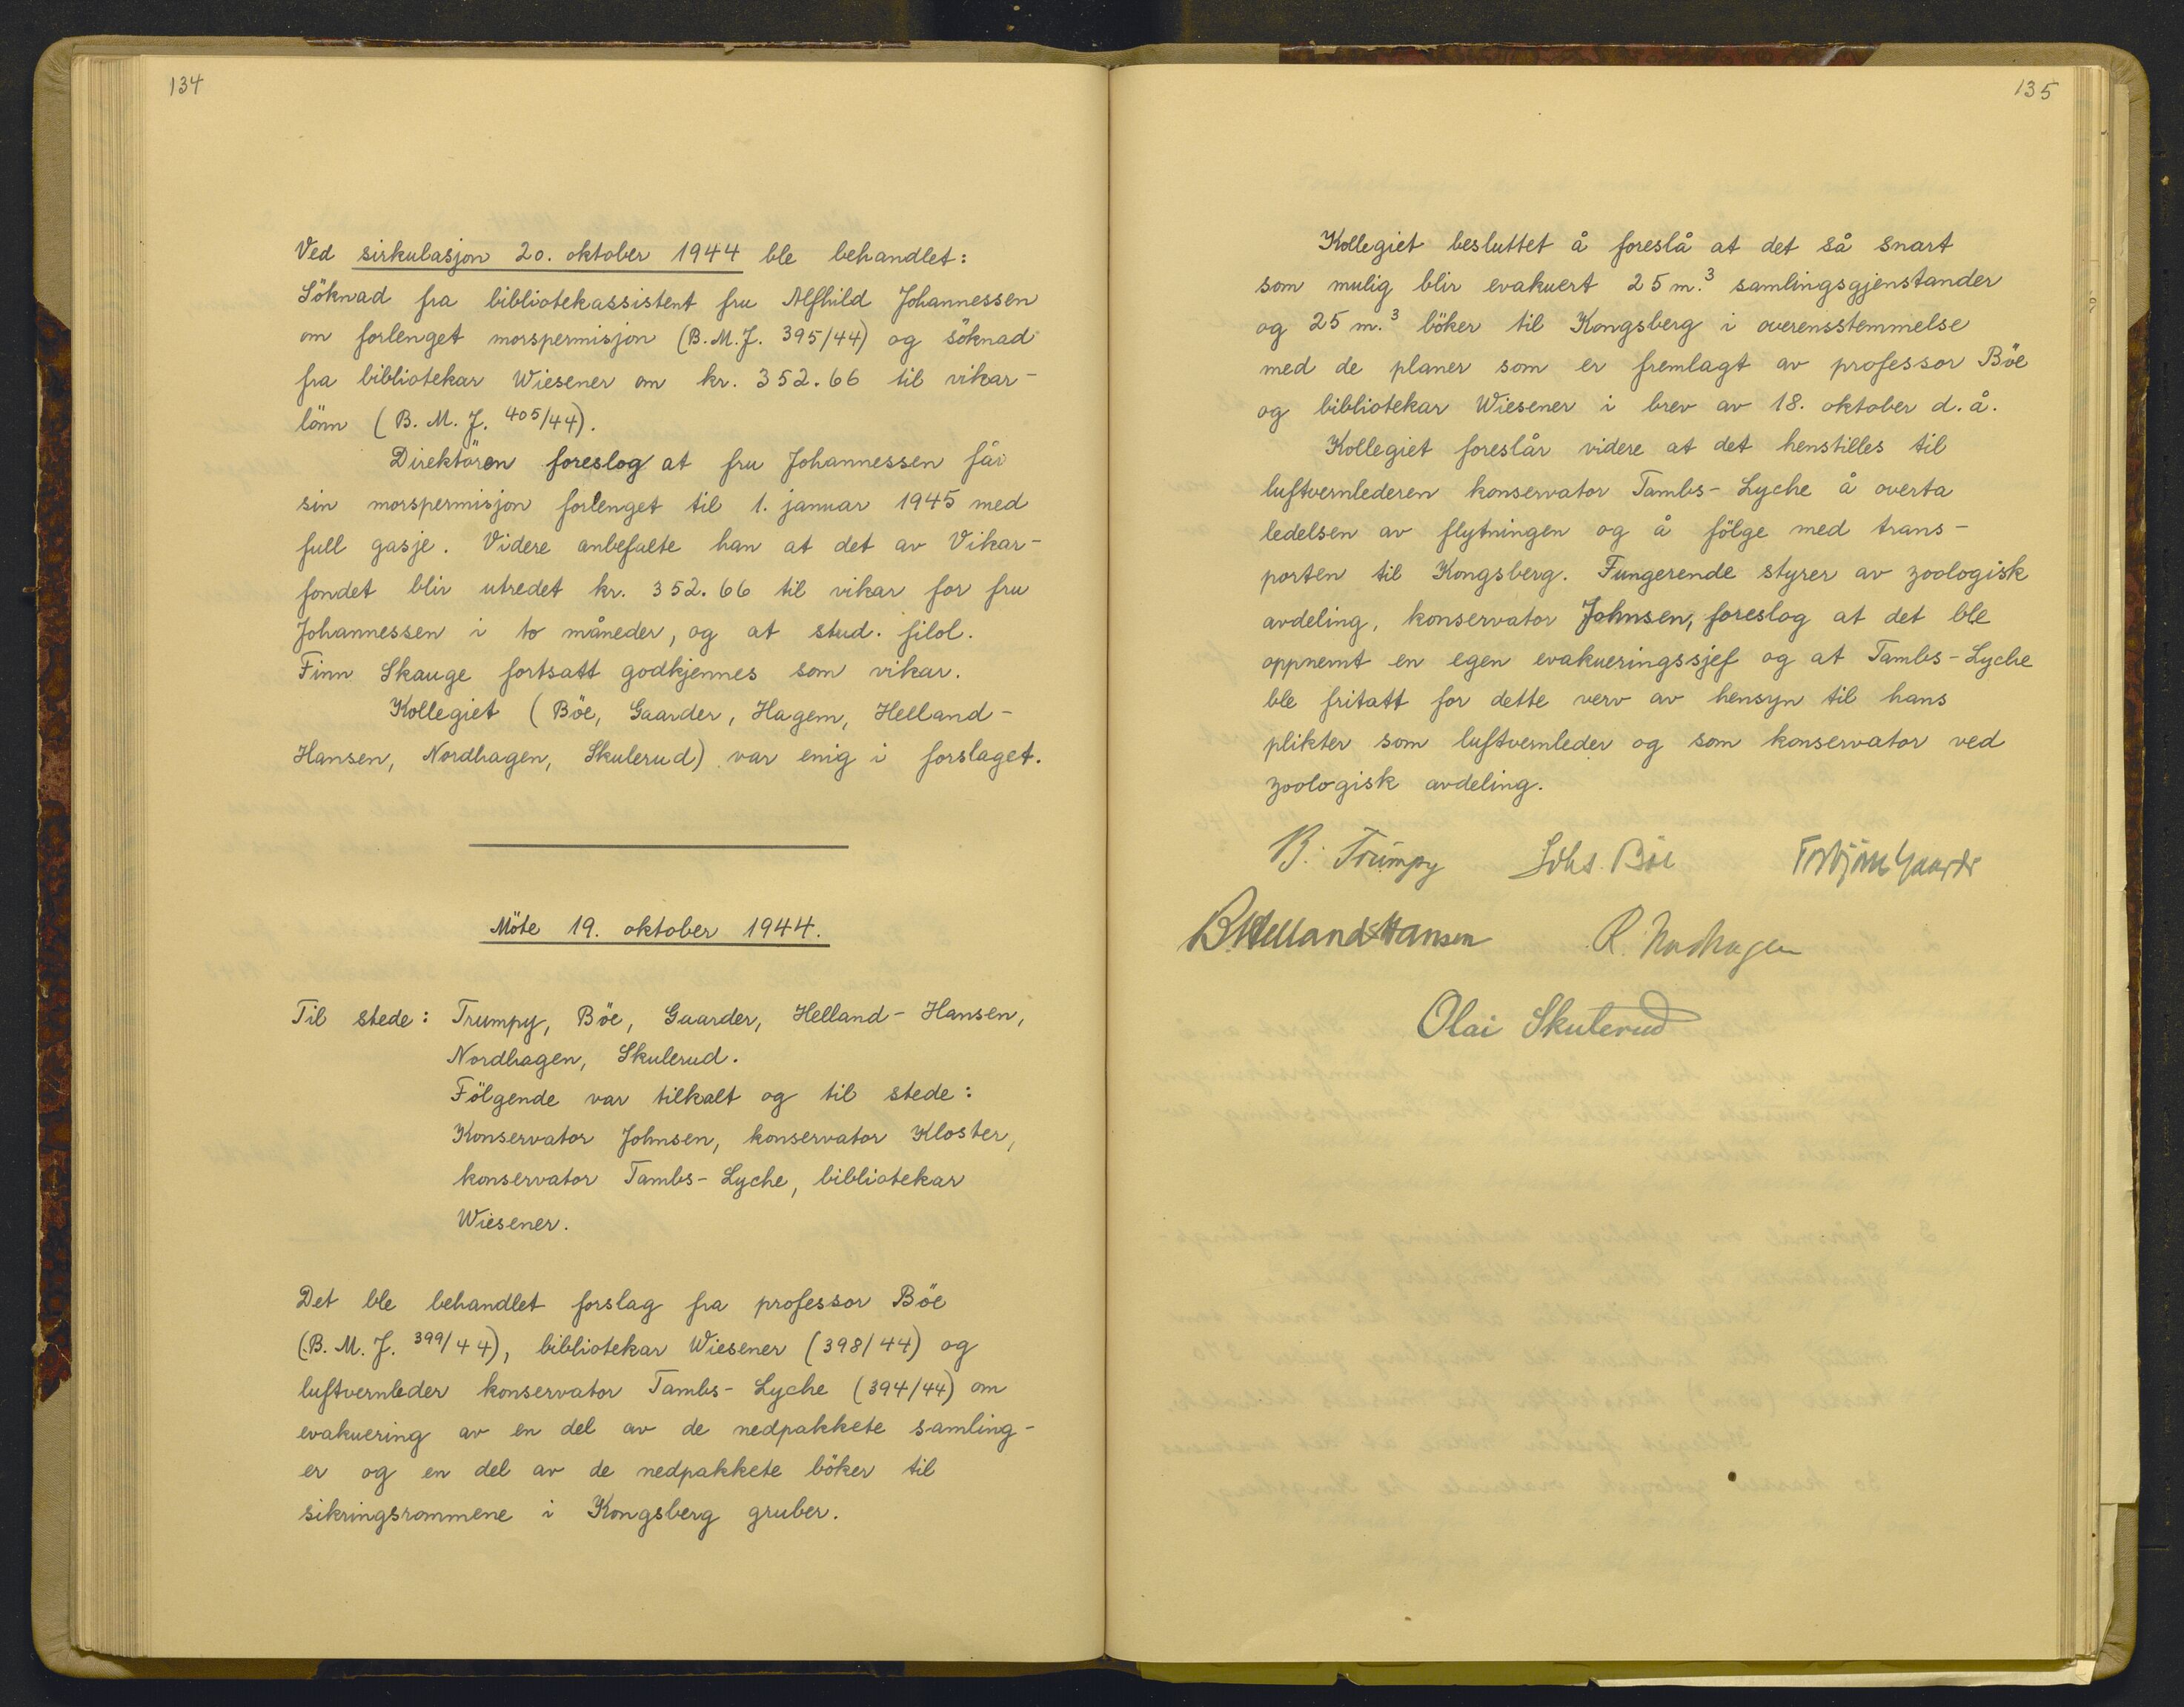 134
Ved sirkulasjon 20. oktober 1944 ble behandlet:
Söknad fra bibliotekassistent fru Alfhild Johannessen
om forlenget morspermisjon (B.M.J. 395/44) og söknad
fra bibliotekar Wiesener om kr. 352.66 til vikar-
lönn (B. M. J. 405/44).
Direktören foreslog at fru Johannessen får
sin morspermisjon forlenget til 1. januar 1945 med
full gasje. Videre anbefalte han at det av Vikar-
fondet blir utredet kr. 352.66 til vikar for fru
Johannessen i to måneder, og at stud. filol.
Finn Skauge fortsatt godkjennes som vikar.
Kollegiet (Böe, Gaarder, Hagem, Helland-
Hansen, Nordhagen, Skulerud) var enig i forslaget.
Möte 19. oktober 1944.
Til stede: Trumpy, Böe, Gaarder, Helland-Hansen,
Nordhagen, Skulerud.
Fölgende var tilkalt og til stede:
Konservator Johnsen, konservator Kloster,
konservator Tambs-Lyche, bibliotekar
Wiesener.
Det ble behandlet forslag fra professor Böe
(B. M. J. 399/44), bibliotekar Wiesener (398/44) og
luftvernleder konservator Tambs-Lyche (394/44) om
evakuering av en del av de nedpakkete samling-
er og en del av de nedpakkete böker til
sikringsrommene i Kongsberg gruber.
135
Kollegiet besluttet å foreslå at det så snart
som mulig blir evakuert 25 m.³ samlingsgjenstander
og 25 m.³ böker til Kongsberg i overensstemmelse
med de planer som er fremlagt av professor Böe
og bibliotekar Wiesener i brev av 18. oktober d.å.
Kollegiet foreslår videre at det henstilles til
luftvernlederen konservator Tambs-Lyche å overta
ledelsen av flytningen og å fölge med trans-
porten til Kongsberg. Fungerende styrer av zoologisk
avdeling, konservator Johnsen, foreslog at det ble
oppnevnt en egen evakueringssjef og at Tambs-Lyche
ble fritatt for dette verv av hensyn til hans
plikter som luftvernleder og som konservator ved
zoologisk avdeling.
B. Trumpy Johs. Böe Torbjörn Gaarder
B Helland-Hansen R. Nordhagen
Olai Skulerud